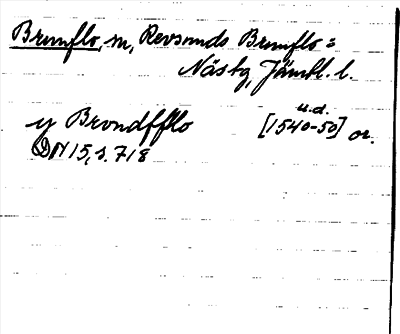 Brunflo, sn, Revsunds Brunflo =
Näsby, Jämtl. l.
u.d.
y Brondfflo [1540-50] or.
DN 15, s. 718